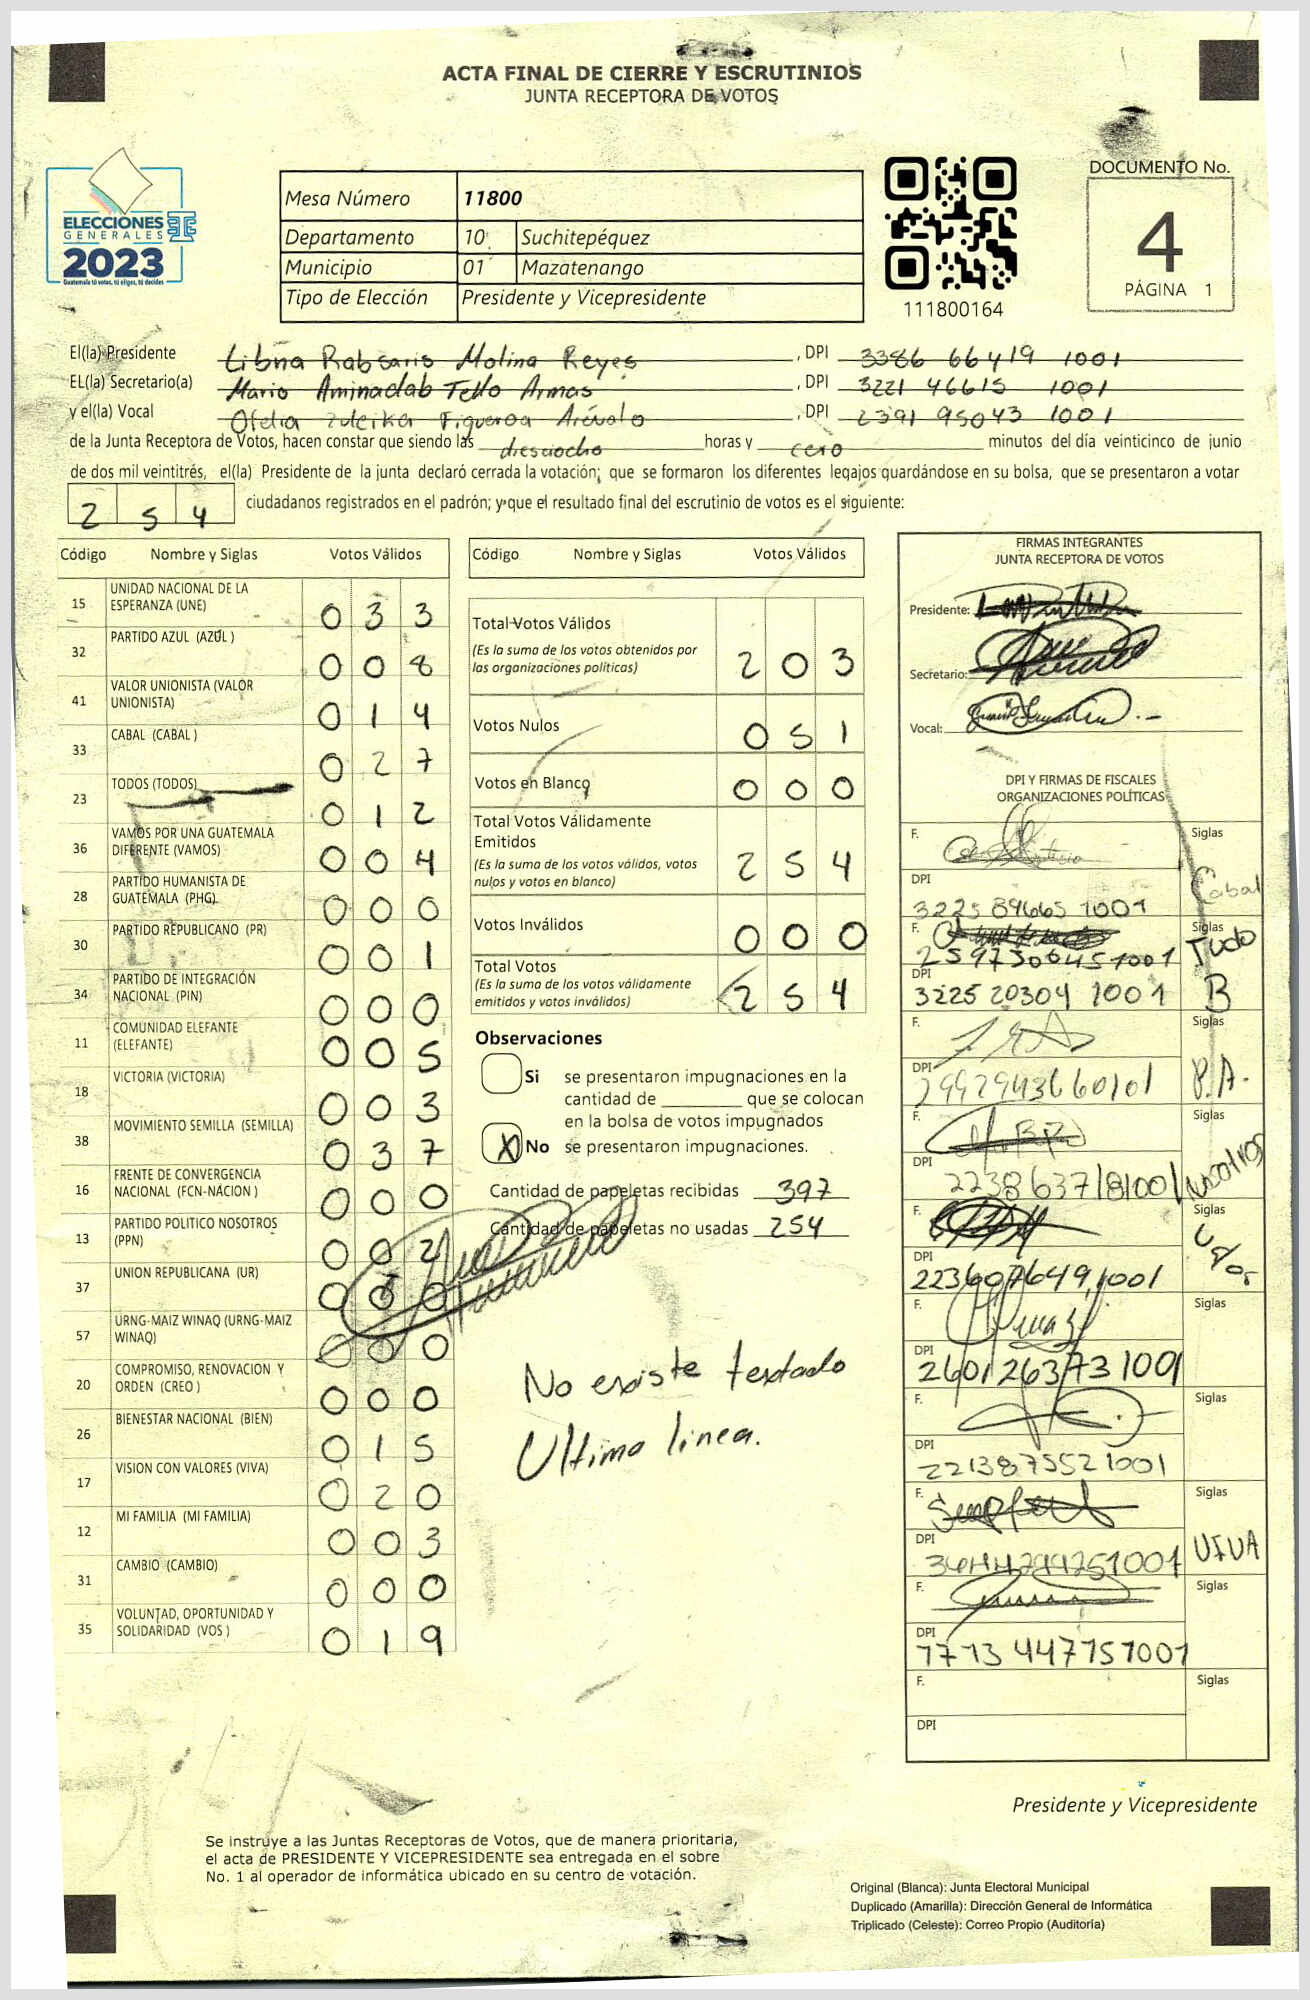 ACTA FINAL DE CIERRE Y ESCRUTINIOS
JUNTA RECEPTORA DE VOTOS
ELECCIONES
GENERALES
2023
Guatemala tú votas, tú eliges, tú decides
Mesa Número 11800
Departamento 10 Suchitepéquez
Municipio 01 Mazatenango
Tipo de Elección Presidente y Vicepresidente
111800164
DOCUMENTO No.
4
PÁGINA 1
El(la) Presidente Libna Rabsaris Molina Reyes, DPI 3386 66419 1001
EL(la) Secretario(a) Mario Aminadab Tello Armas, DPI 3221 46615 1001
y el(la) Vocal Ofelia Zuleika Figueroa Arévalo, DPI 2391 95043 1001
de la Junta Receptora de Votos, hacen constar que siendo las diesciocho horas y cero minutos del día veinticinco de junio
de dos mil veintitrés, el(la) Presidente de la junta declaró cerrada la votación; que se formaron los diferentes legajos guardándose en su bolsa, que se presentaron a votar
254 ciudadanos registrados en el padrón; y que el resultado final del escrutinio de votos es el siguiente:
Código Nombre y Siglas Votos Válidos
15 UNIDAD NACIONAL DE LA ESPERANZA (UNE) 033
32 PARTIDO AZUL (AZUL ) 008
41 VALOR UNIONISTA (VALOR UNIONISTA) 014
33 CABAL (CABAL ) 027
23 TODOS (TODOS) 012
36 VAMOS POR UNA GUATEMALA DIFERENTE (VAMOS) 004
28 PARTIDO HUMANISTA DE GUATEMALA (PHG) 000
30 PARTIDO REPUBLICANO (PR) 001
34 PARTIDO DE INTEGRACIÓN NACIONAL (PIN) 000
11 COMUNIDAD ELEFANTE (ELEFANTE) 005
18 VICTORIA (VICTORIA) 003
38 MOVIMIENTO SEMILLA (SEMILLA) 037
16 FRENTE DE CONVERGENCIA NACIONAL (FCN-NACION ) 000
13 PARTIDO POLITICO NOSOTROS (PPN) 002
37 UNION REPUBLICANA (UR) 000
57 URNG-MAIZ WINAQ (URNG-MAIZ WINAQ) 000
20 COMPROMISO, RENOVACION Y ORDEN (CREO ) 000
26 BIENESTAR NACIONAL (BIEN) 015
17 VISION CON VALORES (VIVA) 020
12 MI FAMILIA (MI FAMILIA) 003
31 CAMBIO (CAMBIO) 000
35 VOLUNTAD, OPORTUNIDAD Y SOLIDARIDAD (VOS ) 019
Código Nombre y Siglas Votos Válidos
Total Votos Válidos
(Es la suma de los votos obtenidos por
las organizaciones políticas) 203
Votos Nulos 051
Votos en Blanco 000
Total Votos Válidamente
Emitidos
(Es la suma de los votos válidos, votos
nulos y votos en blanco) 254
Votos Inválidos 000
Total Votos
(Es la suma de los votos válidamente
emitidos y votos inválidos) 254
Observaciones
Si se presentaron impugnaciones en la
cantidad de ________ que se colocan
en la bolsa de votos impugnados
X No se presentaron impugnaciones.
Cantidad de papeletas recibidas 397
Cantidad de papeletas no usadas 254
No existe textado
Ultima linea.
FIRMAS INTEGRANTES
JUNTA RECEPTORA DE VOTOS
Presidente:
Secretario:
Vocal:
DPI Y FIRMAS DE FISCALES
ORGANIZACIONES POLÍTICAS
F. Siglas
DPI 3225 89665 1001 Cabal
F. Siglas
Todo
DPI 3225 20304 1001 B
F. Siglas
DPI 2992943660101 P.A.
F. Siglas
DPI 2238637181001 Nosotros
F. Siglas
DPI 2236076491001
F. Siglas
DPI 2601263731001
F. Siglas
DPI 2213875521001
F. Siglas
DPI VIVA
F. Siglas
DPI 1713447151001
F. Siglas
DPI
Presidente y Vicepresidente
Se instruye a las Juntas Receptoras de Votos, que de manera prioritaria,
el acta de PRESIDENTE Y VICEPRESIDENTE sea entregada en el sobre
No. 1 al operador de informática ubicado en su centro de votación.
Original (Blanca): Junta Electoral Municipal
Duplicado (Amarilla): Dirección General de Informática
Triplicado (Celeste): Correo Propio (Auditoría)